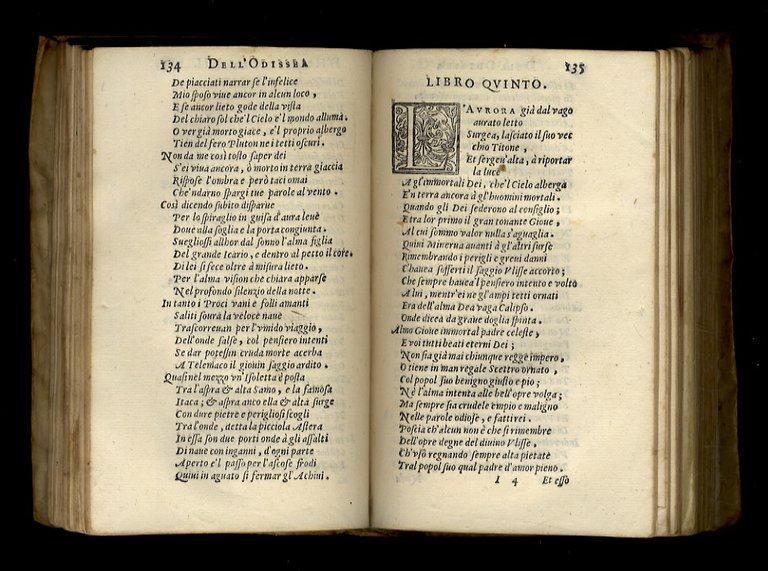 134 DELL'ODISSEA
De piacciati narrar se l'infelice
Mio sposo viue ancor in alcun loco,
E se ancor lieto gode della vista
Del chiaro sol che'l Cielo e'l mondo alluma.
O ver già morto giace, e'l proprio albergo
Tien del fero Pluton ne i tetti oscuri.
Non da me così tosto saper dei
S'ei viua ancora, ò morto in terra giaccia
Rispose l'ombra e però taci omai
Che'ndarno spargi tue parole al vento.
Così dicendo subito disparue
Per lo spiraglio in guisa d'aura leuè
Doue alla soglia e la porta congiunta.
Suegliossi allhor dal sonno l'alma figlia
Del grande Icario, e dentro al petto il core.
Di lei si fece oltre à misura lieto.
Per l'alma vision che chiara apparse
Nel profondo silenzio della notte.
In tanto i Proci vani e folli amanti
Saliti soura la veloce naue
Trascorreuan per l'vmido viaggio,
Dell'onde salse, col pensiero intenti
Se dar potessin cruda morte acerba
A Telemaco il giouin saggio ardito.
Quasi nel mezzo vn'Isoletta è posta
Tra l'aspra & alta Samo, e la famosa
Itaca; & aspra anco ella & alta surge
Con dure pietre e perigliosi scogli
Tra l'onde, detta la picciola Astera
In essa son due porti onde à gli assalti
Di naue con inganni, d'ogni parte
Aperto e'l passo per l'ascose frodi
Quiui in aguato si fermar gl'Achiui.
135
LIBRO QVINTO.
L'AVRORA già dal vago
aurato letto
Surgea, lasciato il suo vec
chio Titone,
Et sergen'alta, à riportar
la luce
A gl'immortali Dei, che'l Cielo alberga
E'n terra ancora à gl'huomini mortali.
Quando gli Dei sederono al consiglio;
E tra lor primo il gran tonante Gioue,
Al cui sommo valor nulla s'aguaglia.
Quiui Minerua auanti à gl'altri surse
Rimembrando i perigli e greui danni
C'hauea sofferti il saggio Vlisse accorto;
Che sempre hauea'l pensiero intento e volto
A lui, mentr'ei ne gl'ampi tetti ornati
Era dell'alma Dea vaga Calipso.
Onde dicea da graue doglia spinta.
Almo Gioue immortal padre celeste,
E voi tutti beati eterni Dei;
Non sia già mai chiunque regge impero,
O tiene in man regale Scettro ornato,
Col popol suo benigno giusto e pio;
Nè l'alma intenta alle bell'opre volga;
Ma sempre sia crudele empio e maligno
Nelle parole odiose, e fatti rei.
Poscia ch'alcun non è che si rimembre
Dell'opre degne del diuino Vlisse,
Ch'vsò regnando sempre alta pietate
Tra'l popol suo qual padre d'amor pieno.
I 4 Et esso